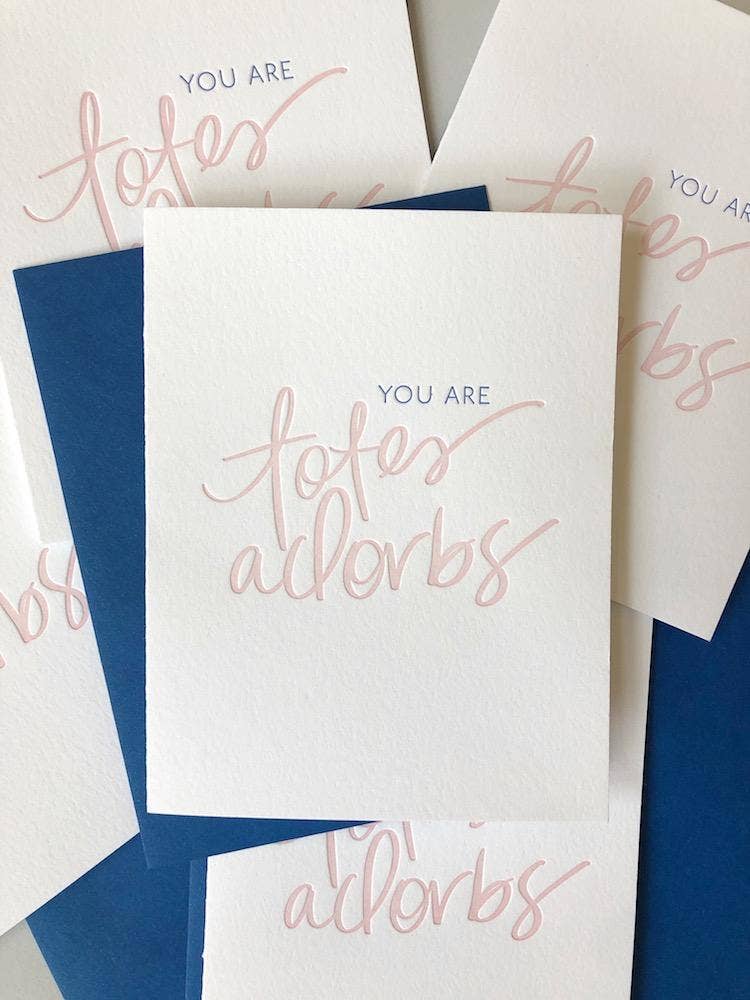 YOU ARE
totes
YOU AR
totes
rbs
YOU ARE
totes
adorbs
rbs
adorbs